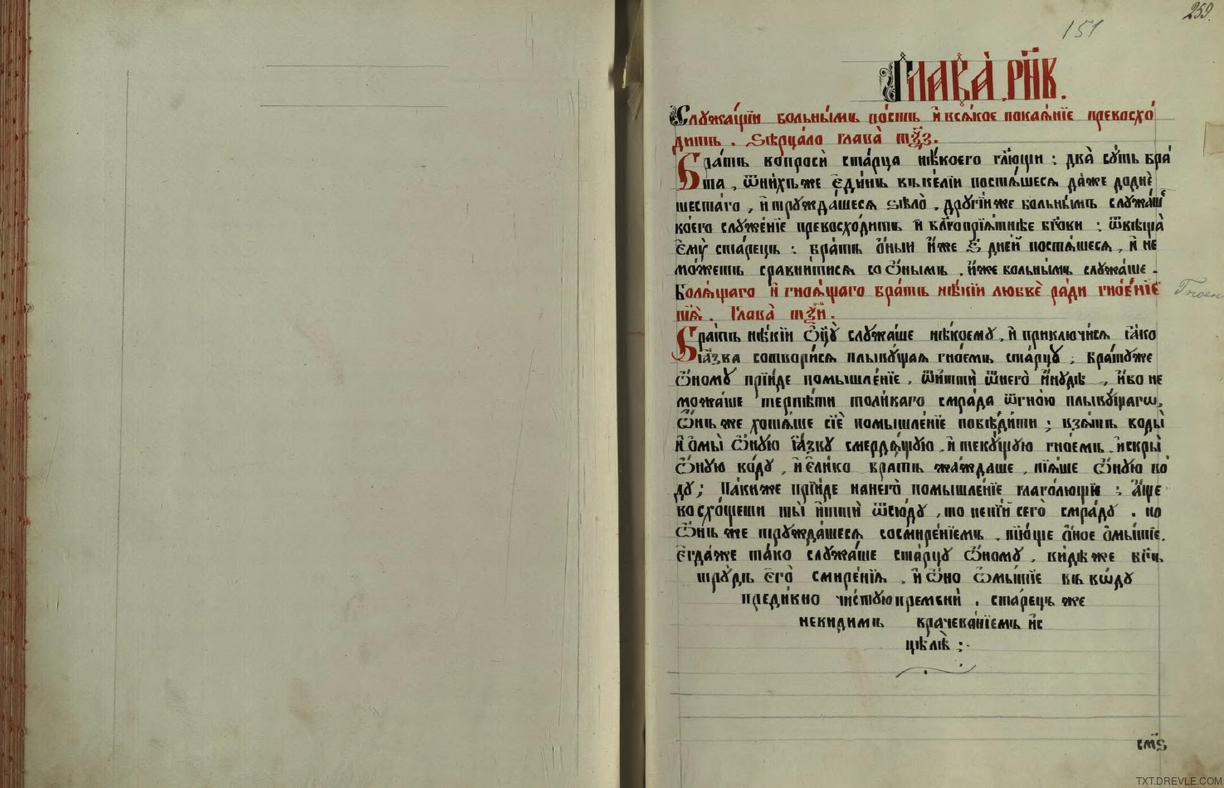 259.
151
Глава̀ рн҃в.
Слꙋжащїи больнымъ постъ и҆ всѧкое покаѧнїе превосхо
дитъ . Ѕѣрцало глава̀ тѯ҃з.
Братъ вопроси старца нѣкоего гл҃ющи : два̀ сꙋть бра
та , ѿнихъже є҆динъ въкелїи постѧшесѧ даже додне
шестаго , и҆ трꙋждашесѧ ѕѣло . дрꙋгїиже больнымъ слꙋжаш
коего слꙋженїе превосходитъ и҆ бл҃гопрїѧтнѣе бг҃ови : ѿвѣща̀
є҆мꙋ̀ старецъ : братъ ѻ҆ныи и҆же ѕ҃ дней постѧшесѧ , и҆ не
можетъ сравнитисѧ со ѻ҆нымъ . и҆же больнымъ слꙋжаше .
Болѧщаго и҆ гноѧщаго братъ нѣкїи любвѐ ради гноенїе
пїѧ̀ . Глава̀ тѯ҃и .
Братъ нѣкїи ѻ҆ц҃ꙋ̀ слꙋжаше нѣкоемꙋ , и҆ приключисѧ ꙗ҆ко
ꙗ҆зва сотворисѧ плывꙋщаѧ гноемъ старцꙋ ; братꙋже
ѻ҆номꙋ прїиде помышленїе , ѿитти ѿнегѡ̀ и҆нꙋдѣ , и҆бо не
можаше терпѣти толикаго смрада ѿгною плывꙋщагѡ,
ѻ҆нъ же хотѧше сїѐ помышленїе повѣдити ; взѧтъ воды
и҆ ѻ҆мы̀ ѻ҆нꙋю ꙗ҆звꙋ смердѧщꙋю , и҆ текꙋщꙋю гноемъ . и҆скры̀
ѻ҆нꙋю водꙋ , и҆ є҆лико братъ жаждаше , пїѧше ѻ҆нꙋю во
дꙋ ; Пакиже прїиде нанего̀ помышленїе глаголющи : а҆ще
восхощеши ты̀ и҆тти ѿсюдꙋ , то непїй сего̀ смрадꙋ . но
ѻ҆нъ же трꙋждашесѧ сосмиренїемъ . пїюще ѻ҆ное ѻ҆мытїе.
є҆гдаже тако слꙋжаше старцꙋ ѻ҆номꙋ , видѣ же бг҃ъ
трꙋдъ є҆го̀ смиренїѧ . и҆ ѻ҆но ѻ҆мытїе въ вѡдꙋ
предивно чистꙋюпремѣни . старецъ же
невидимъ врачеванїемъ и҆с
цѣлѣ ;·
см҃ѕ
TXT.DREVLE.COM